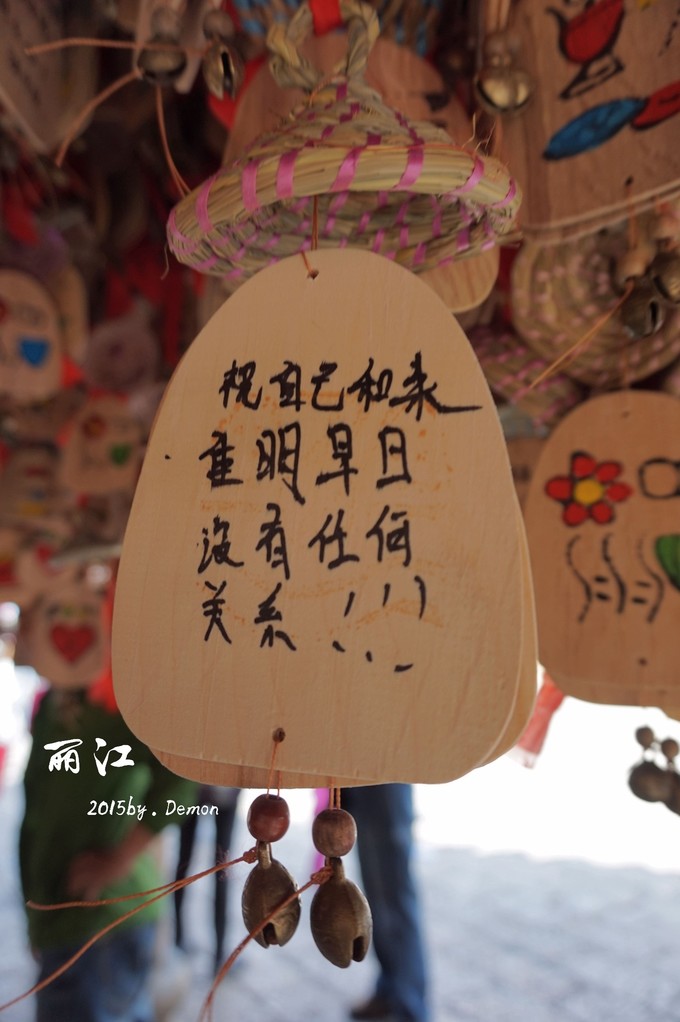 祝自己和来
重明早日
没有任何
关系!!!
丽江
2015by.Demon